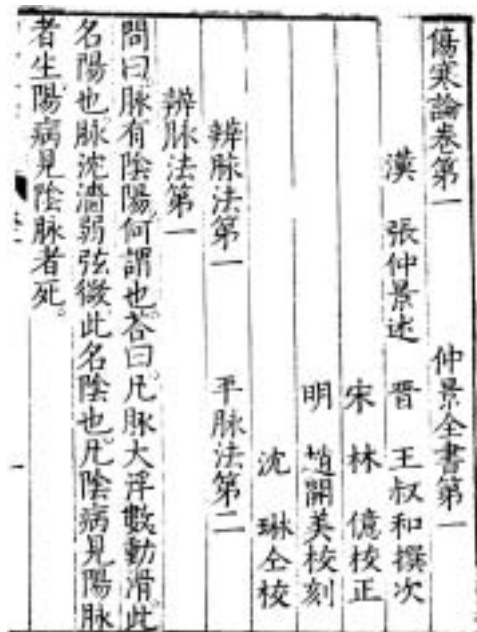 傷寒論卷第一　仲景全書第一
漢　張仲景述　晋　王叔和撰次
宋　林　億校正
明　趙開美校刻
沈　琳仝校
辨脉法第一　平脉法第二
辨脉法第一
問曰。脉有陰陽。何謂也。荅曰。凡脉大浮數動滑。此
名陽也。脉沈濇弱弦微。此名陰也。凡陰病見陽脉
者生。陽病見陰脉者死。